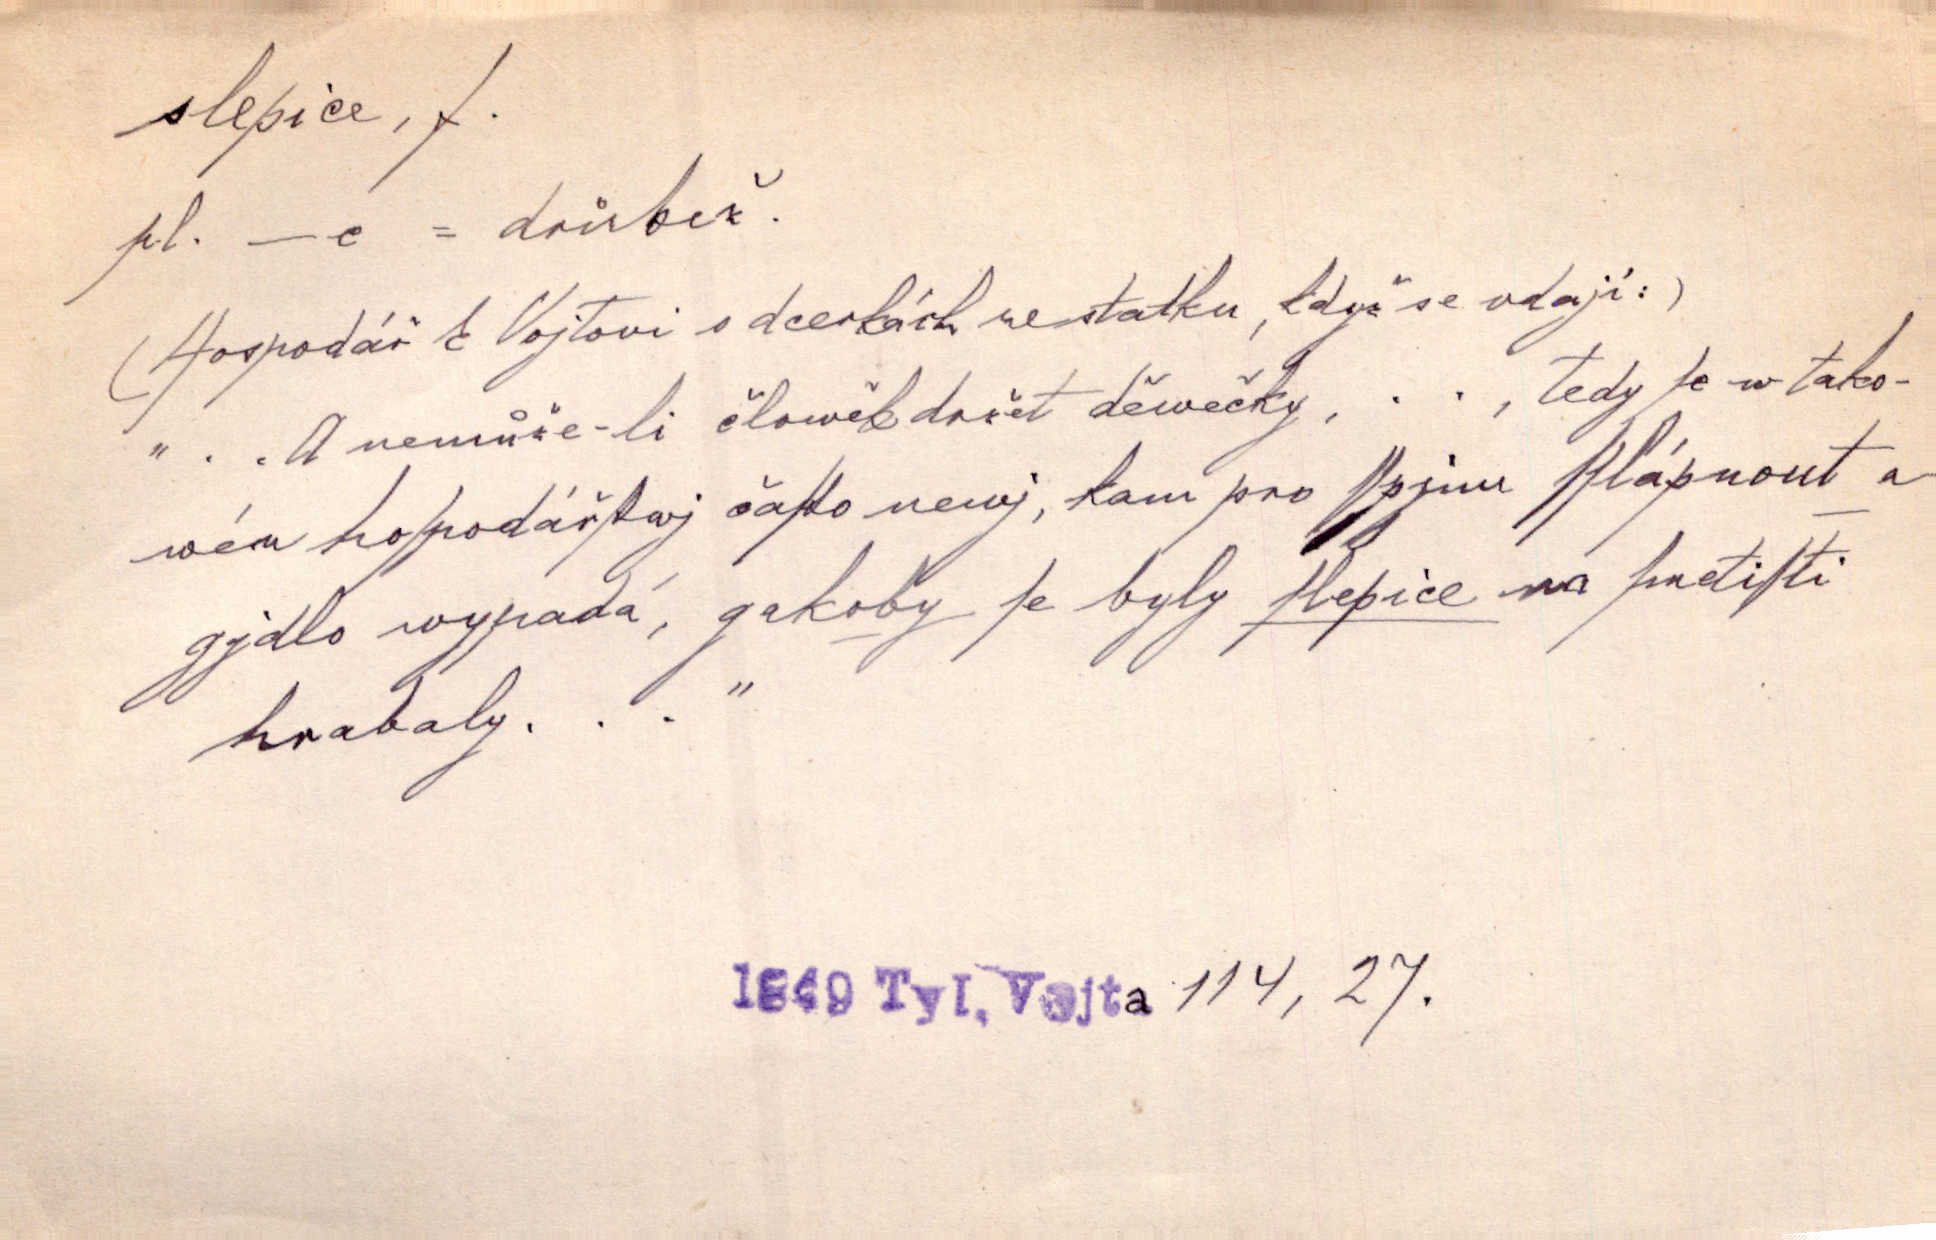 slepice, f.
pl. —e = drůbež.
(Hospodář k Vojtovi o dcerkách ze statku, když se vdají:)
" . . A nemůže-li člowěk držet děwečky, . . , tedy ſe w tako-
wém hoſpodářſtwj čaſto newj, kam pro ſſpjnu ſſlápnout a
gjdlo wypadá, gakoby ſe byly ſlepice na ſmetiſti
hrabaly. . . "
1849 Tyl, Vojta 114, 27.